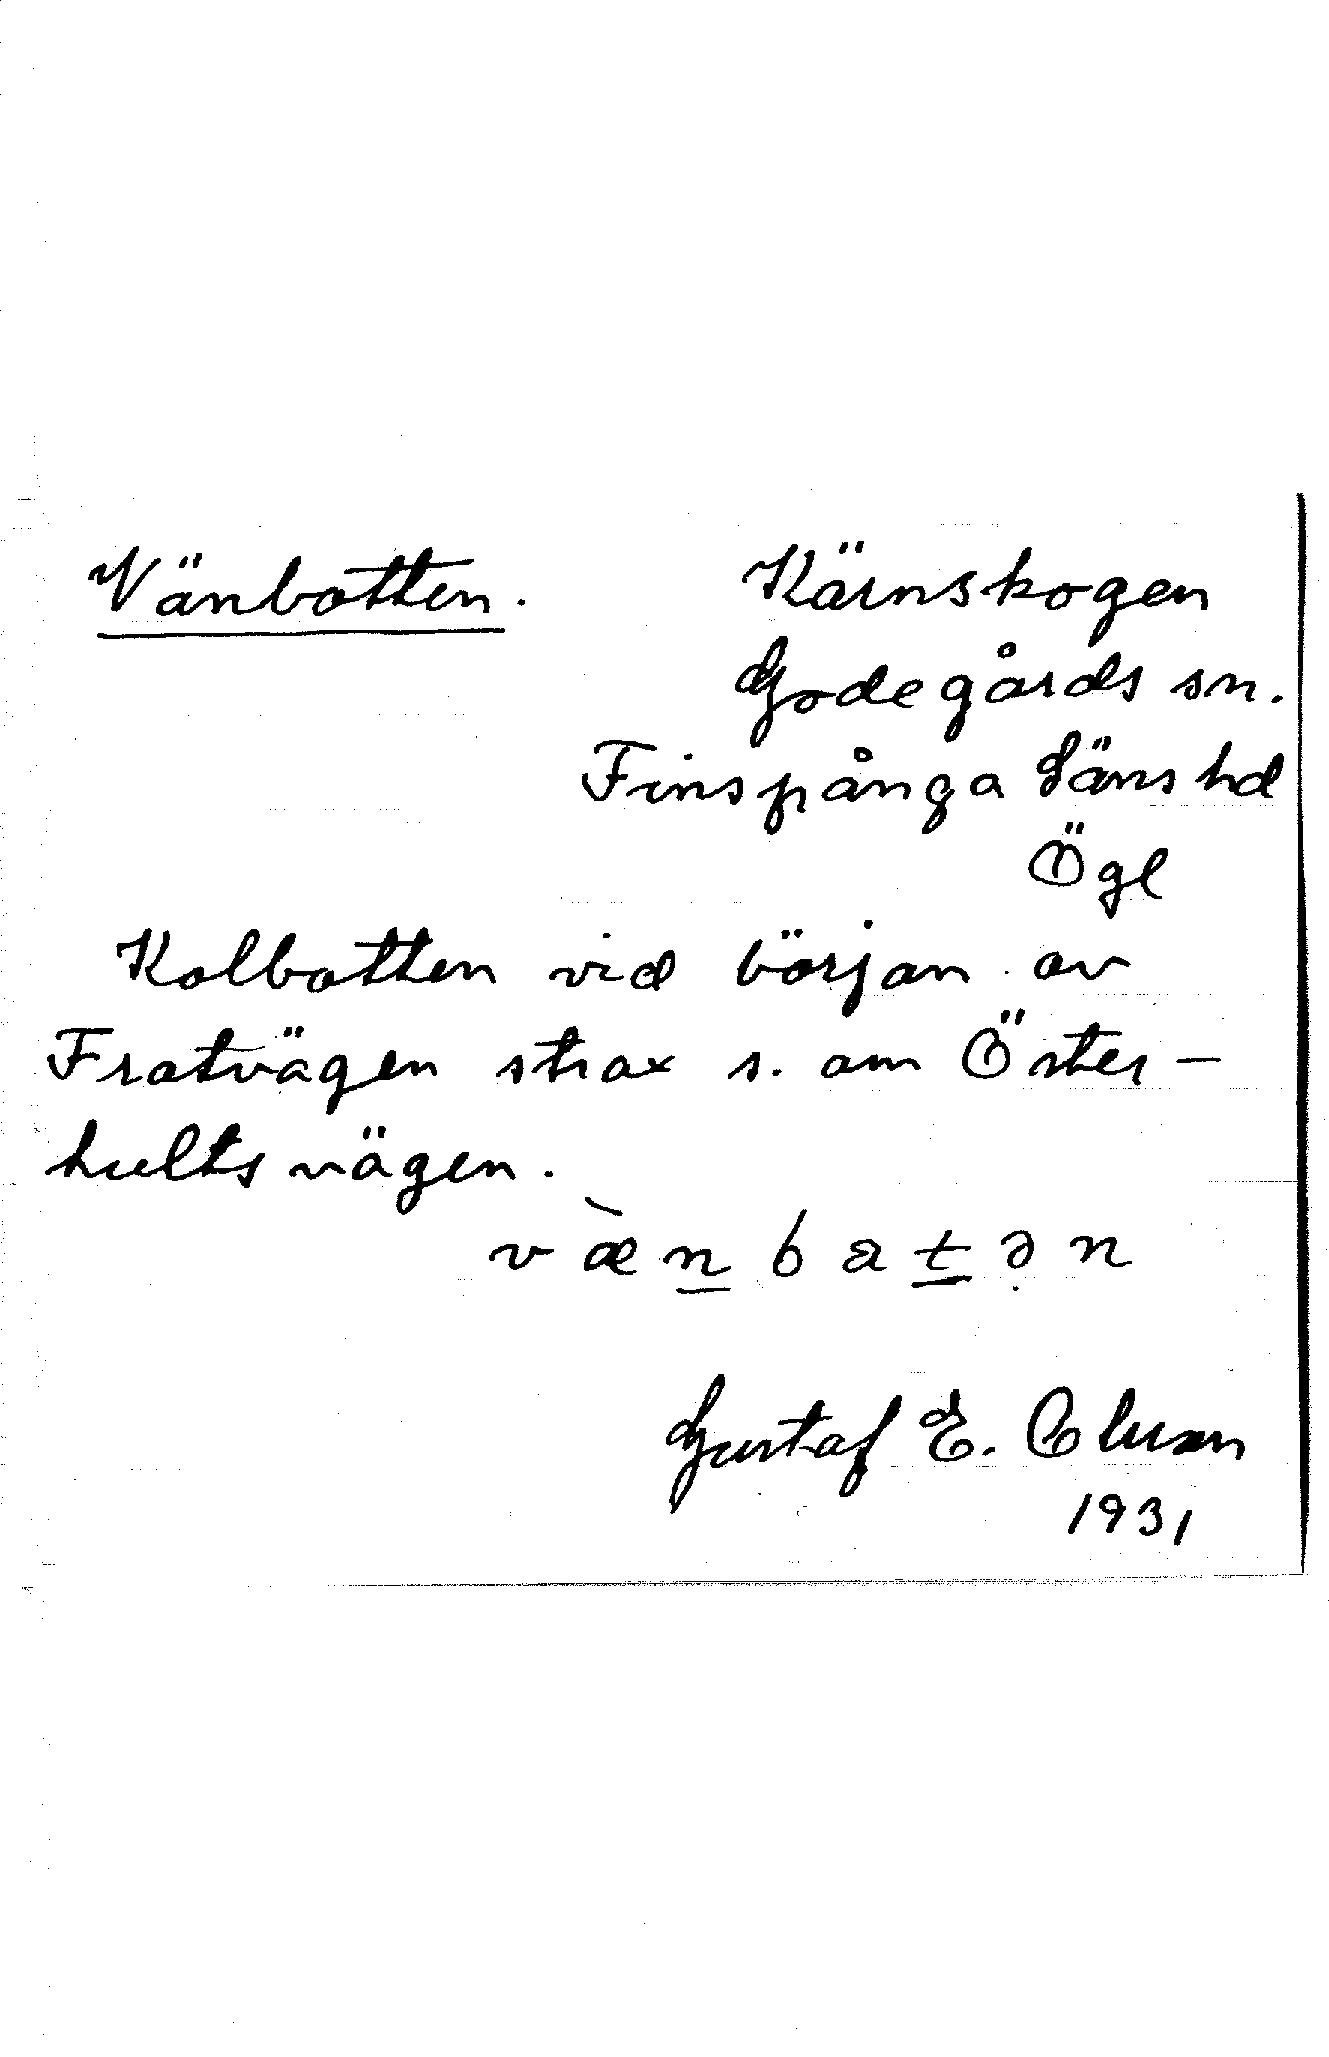 Vänbotten. Kärnskogen
Godegårds sn.
Finspånga Läns hd
Ögl
Kolbotten vid början av
Fratvägen strax s. om Öster-
hultsvägen.
v æ̀ n b a t ə n
Gustaf E.
1931